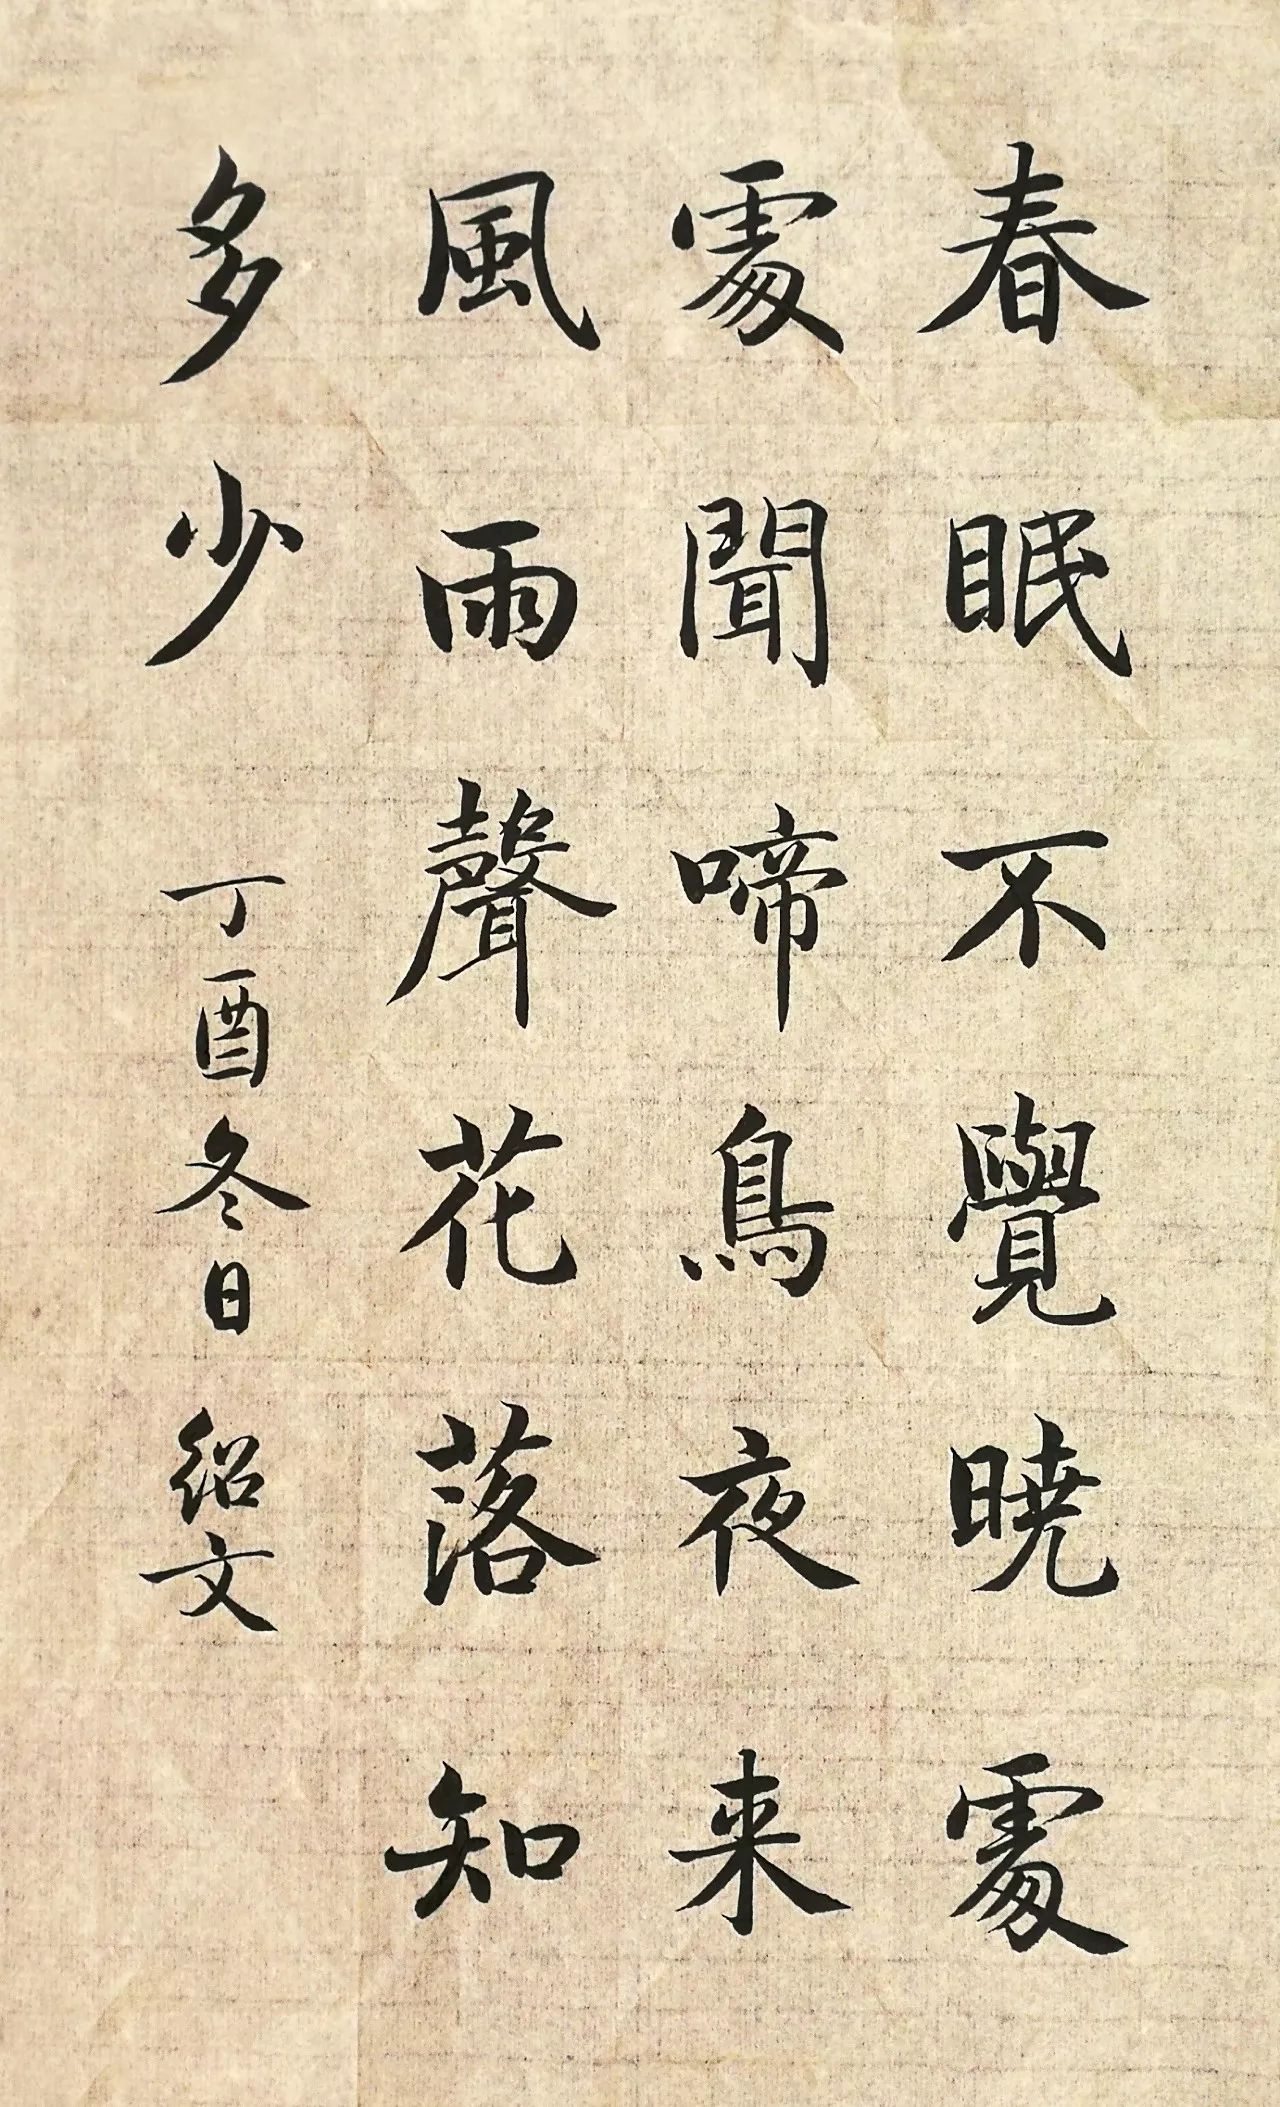 春眠不覺曉處
處聞啼鳥夜来
風雨聲花落知
多少
丁酉冬日 绍文